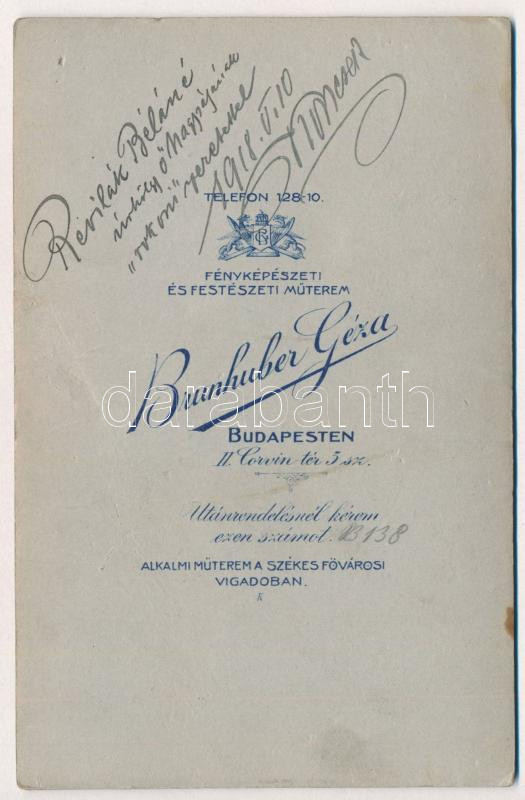 Révilák Béláné
úrhölgy őnagyságának
"rokoni" szeretettel
1918. V. 10
TELEFON 128-10.
FÉNYKÉPÉSZETI
ÉS FESTÉSZETI MŰTEREM
Brunhuber Géza
darabanth
BUDAPESTEN
II. Corvin-tér 5 sz.
Utánrendelésnél kérem
ezen számot. B138
ALKALMI MŰTEREM A SZÉKES FŐVÁROSI
VIGADOBAN.
K